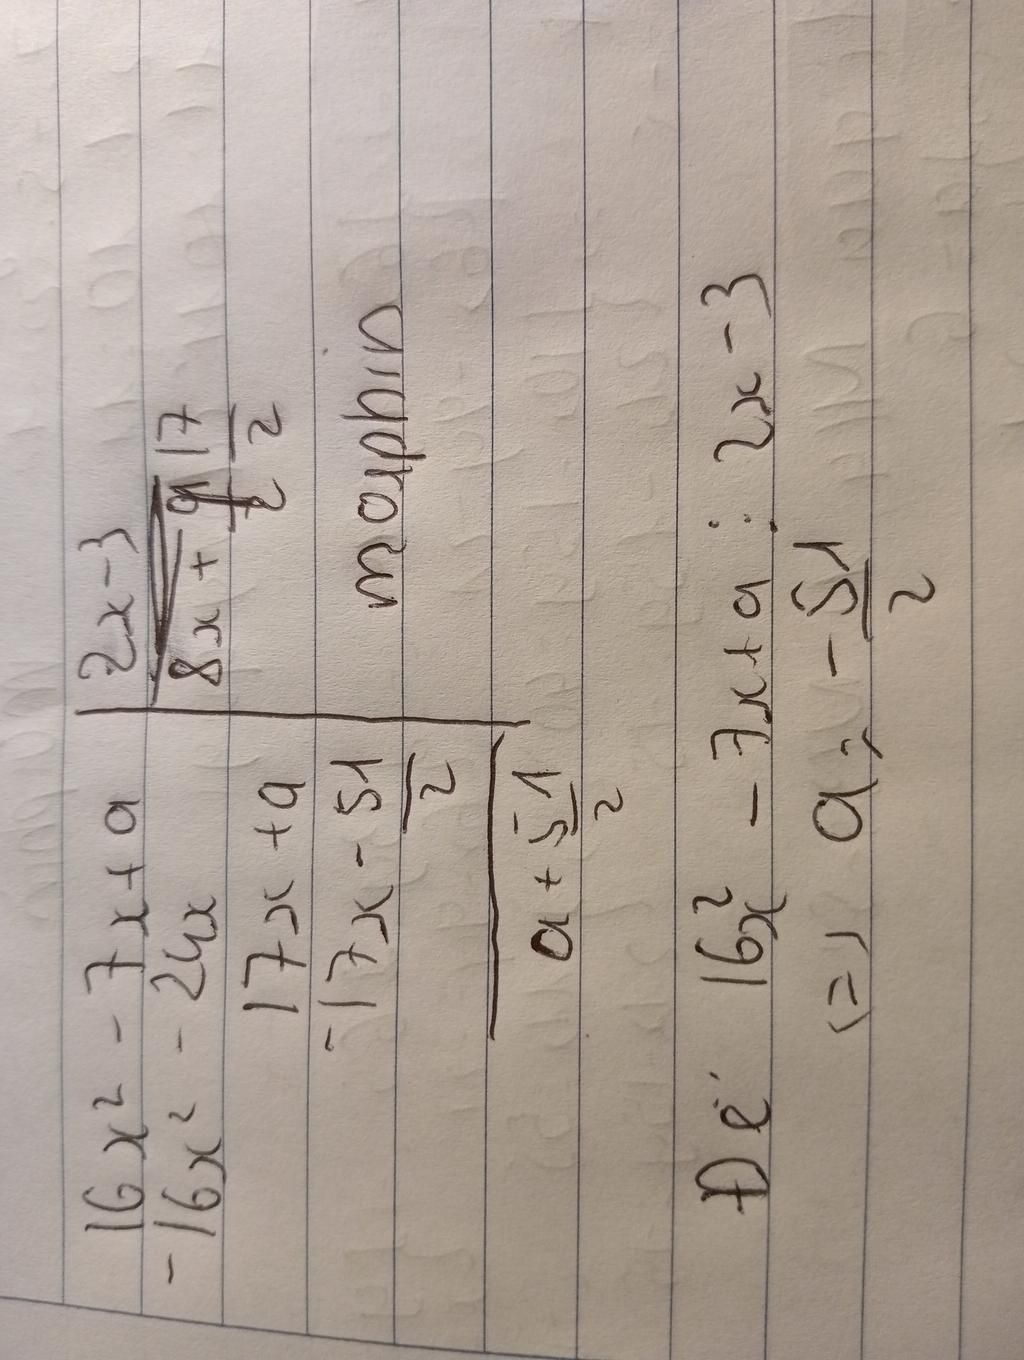 16x² - 7x + a | 2x - 3
- 16x² - 24x | 8x + 17/2
17x + a
- 17x - 51/2
morphin
a + 51/2
Để 16x² - 7x + a ⋮ 2x - 3
<=> a = - 51/2